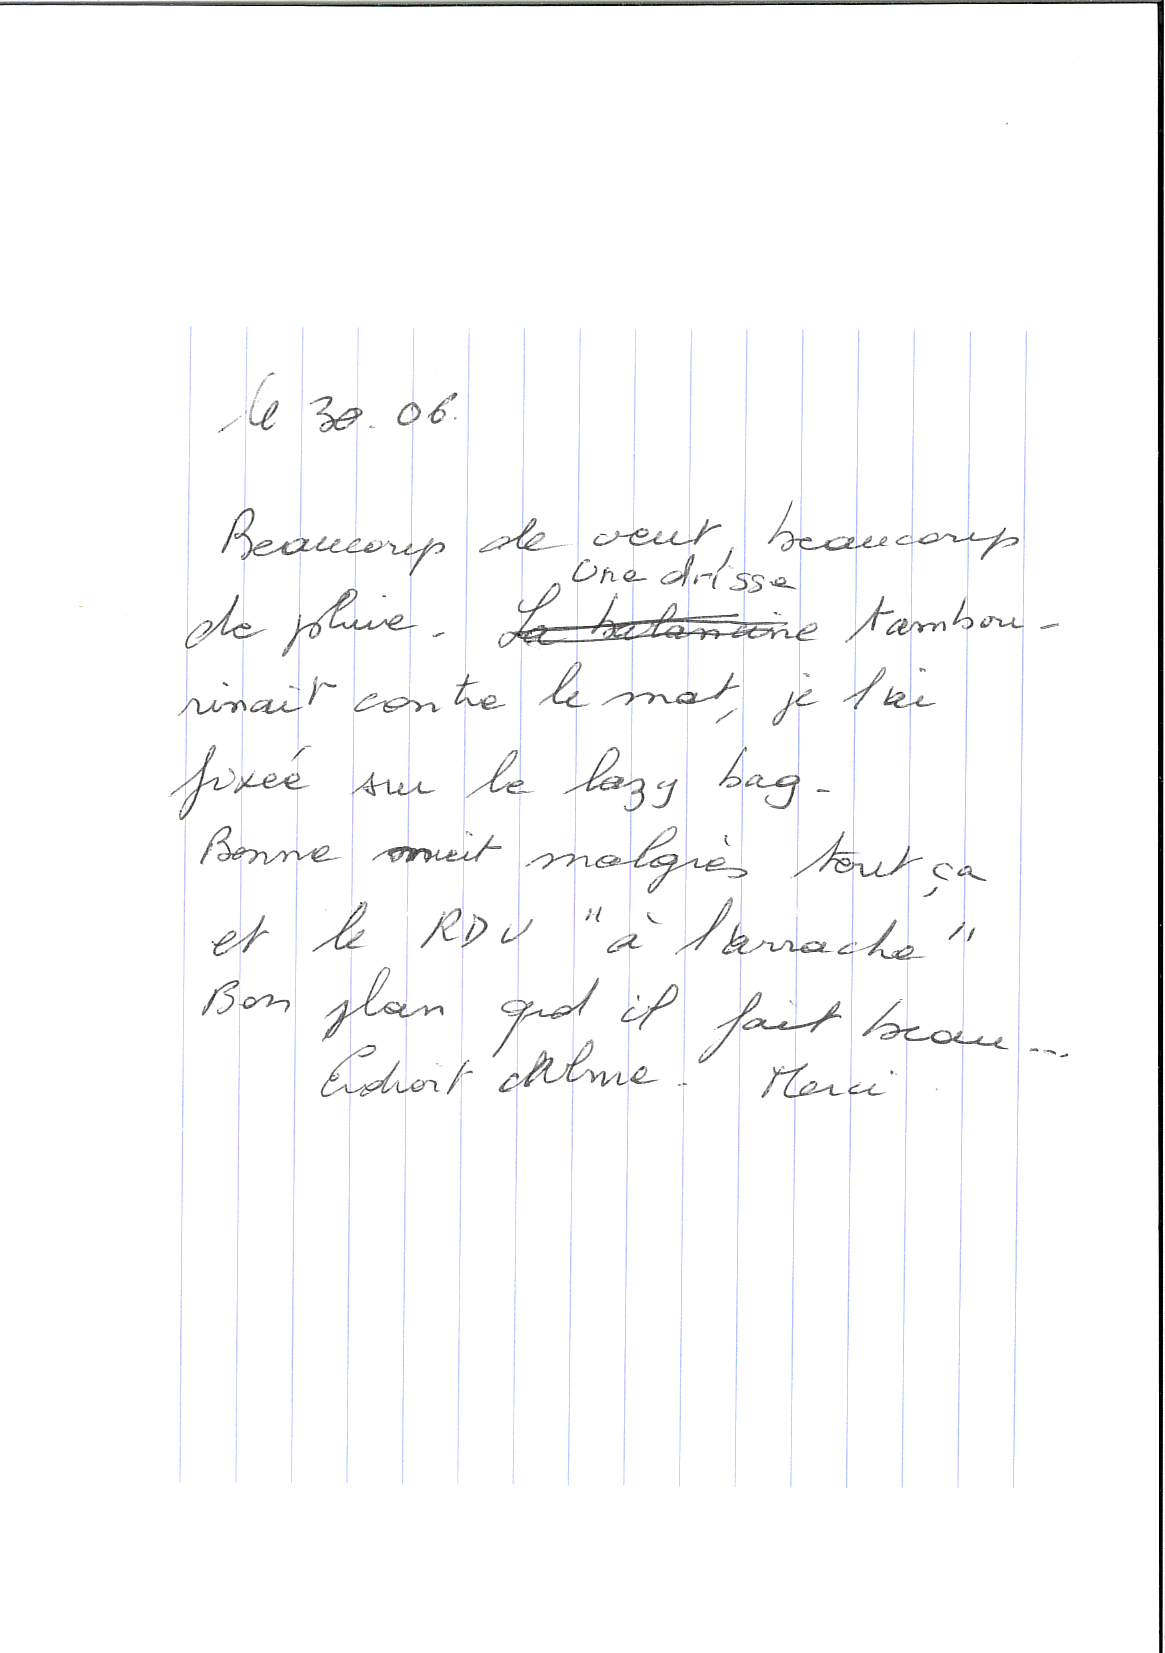 le 30.06.
Beaucoup de vent, beaucoup
Une drisse
de pluie. La balancine tambou-
rinait contre le mat, je l'ai
fixée sur le lazy bag.
Bonne nuit malgrès tout ça
et le RDV "à l'arrache"
Bon plan qnd il fait beau...
Endroit calme. Merci